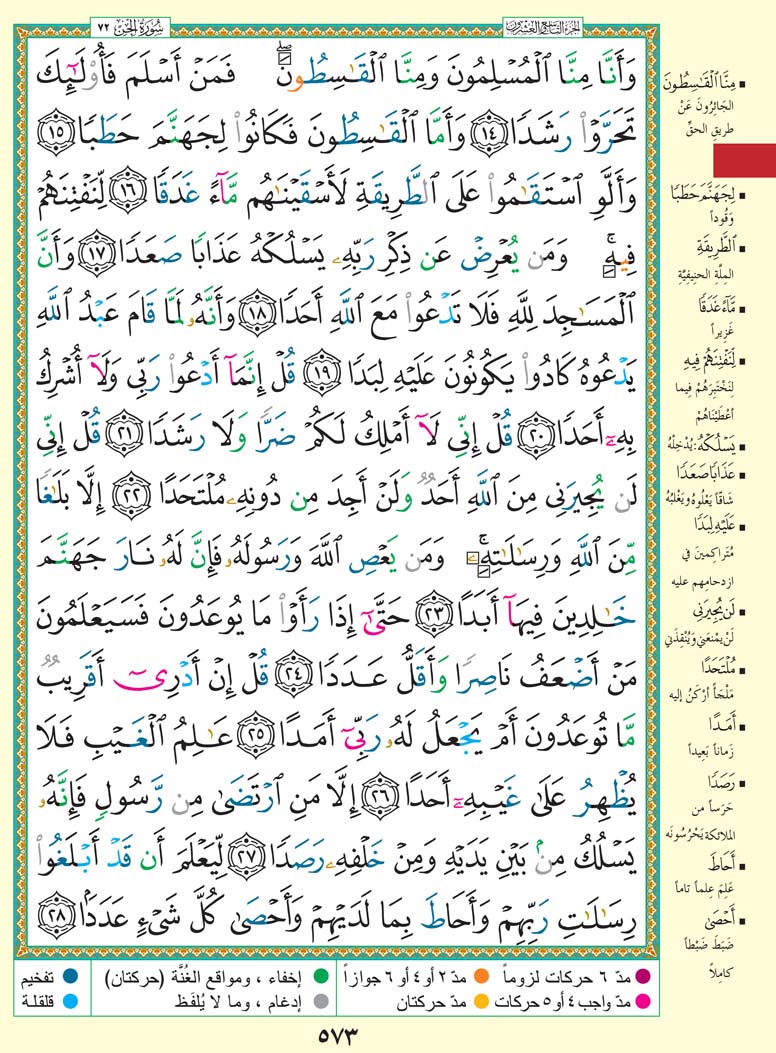 سُورَةُ الجِنّ ٧٢
الجزء التاسع والعشرون
وَأَنَّا مِنَّا ٱلْمُسْلِمُونَ وَمِنَّا ٱلْقَـٰسِطُونَ ۖ فَمَنْ أَسْلَمَ فَأُو۟لَـٰٓئِكَ
تَحَرَّوْا۟ رَشَدًا ١٤ وَأَمَّا ٱلْقَـٰسِطُونَ فَكَانُوا۟ لِجَهَنَّمَ حَطَبًا ١٥
وَأَلَّوِ ٱسْتَقَـٰمُوا۟ عَلَى ٱلطَّرِيقَةِ لَأَسْقَيْنَـٰهُم مَّآءً غَدَقًا ١٦ لِّنَفْتِنَهُمْ
فِيهِ ۚ وَمَن يُعْرِضْ عَن ذِكْرِ رَبِّهِۦ يَسْلُكْهُ عَذَابًا صَعَدًا ١٧ وَأَنَّ
ٱلْمَسَـٰجِدَ لِلَّهِ فَلَا تَدْعُوا۟ مَعَ ٱللَّهِ أَحَدًا ١٨ وَأَنَّهُۥ لَمَّا قَامَ عَبْدُ ٱللَّهِ
يَدْعُوهُ كَادُوا۟ يَكُونُونَ عَلَيْهِ لِبَدًا ١٩ قُلْ إِنَّمَآ أَدْعُوا۟ رَبِّى وَلَآ أُشْرِكُ
بِهِۦٓ أَحَدًا ٢٠ قُلْ إِنِّى لَآ أَمْلِكُ لَكُمْ ضَرًّا وَلَا رَشَدًا ٢١ قُلْ إِنِّى
لَن يُجِيرَنِى مِنَ ٱللَّهِ أَحَدٌ وَلَنْ أَجِدَ مِن دُونِهِۦ مُلْتَحَدًا ٢٢ إِلَّا بَلَـٰغًا
مِّنَ ٱللَّهِ وَرِسَـٰلَـٰتِهِۦ ۚ وَمَن يَعْصِ ٱللَّهَ وَرَسُولَهُۥ فَإِنَّ لَهُۥ نَارَ جَهَنَّمَ
خَـٰلِدِينَ فِيهَآ أَبَدًا ٢٣ حَتَّىٰٓ إِذَا رَأَوْا۟ مَا يُوعَدُونَ فَسَيَعْلَمُونَ
مَنْ أَضْعَفُ نَاصِرًا وَأَقَلُّ عَدَدًا ٢٤ قُلْ إِنْ أَدْرِىٓ أَقَرِيبٌ
مَّا تُوعَدُونَ أَمْ يَجْعَلُ لَهُۥ رَبِّىٓ أَمَدًا ٢٥ عَـٰلِمُ ٱلْغَيْبِ فَلَا
يُظْهِرُ عَلَىٰ غَيْبِهِۦٓ أَحَدًا ٢٦ إِلَّا مَنِ ٱرْتَضَىٰ مِن رَّسُولٍ فَإِنَّهُۥ
يَسْلُكُ مِنۢ بَيْنِ يَدَيْهِ وَمِنْ خَلْفِهِۦ رَصَدًا ٢٧ لِّيَعْلَمَ أَن قَدْ أَبْلَغُوا۟
رِسَـٰلَـٰتِ رَبِّهِمْ وَأَحَاطَ بِمَا لَدَيْهِمْ وَأَحْصَىٰ كُلَّ شَىْءٍ عَدَدًۢا ٢٨
▪ مِنَّا ٱلْقَـٰسِطُونَ
الجَائِرُونَ عَنْ
طريقِ الحقِّ
▪ لِجَهَنَّمَ حَطَبًا
وَقُوداً
▪ ٱلطَّرِيقَةِ
الملّة الحنيفيّة
▪ مَّآءً غَدَقًا
غَزِيراً
▪ لِّنَفْتِنَهُمْ فِيهِ
لِنَخْتَبِرَهُمْ فيما
أعْطَيْنَاهُمْ
▪ يَسْلُكْهُ: يُدْخِلْهُ
▪ عَذَابًا صَعَدًا
شَاقّاً يَعْلُوهُ وَيَغْلِبُهُ
▪ عَلَيْهِ لِبَدًا
مُتَراكِمين في
ازدحامِهم عليه
▪ لَن يُجِيرَنِى
لَنْ يمْنعَني وَيُنْقِذَني
▪ مُلْتَحَدًا
مَلْجَأً أرْكَنُ إليه
▪ أَمَدًا
زَماناً بَعِيداً
▪ رَصَدًا
حَرَساً من
الملائكة يَحْرُسُونَه
▪ أَحَاطَ
عَلِمَ عِلماً تاماً
▪ أَحْصَىٰ
ضَبَطَ ضَبْطاً
كامِلاً
مدّ ٦ حركات لزوماً مدّ ٢ أو ٤ أو ٦ جوازاً إخفاء ، ومواقع الغُنَّة (حركتان) تفخيم
مدّ واجب ٤ أو ٥ حركات مدّ حركتان إدغام ، وما لا يُلفَظ قلقلة
٥٧٣